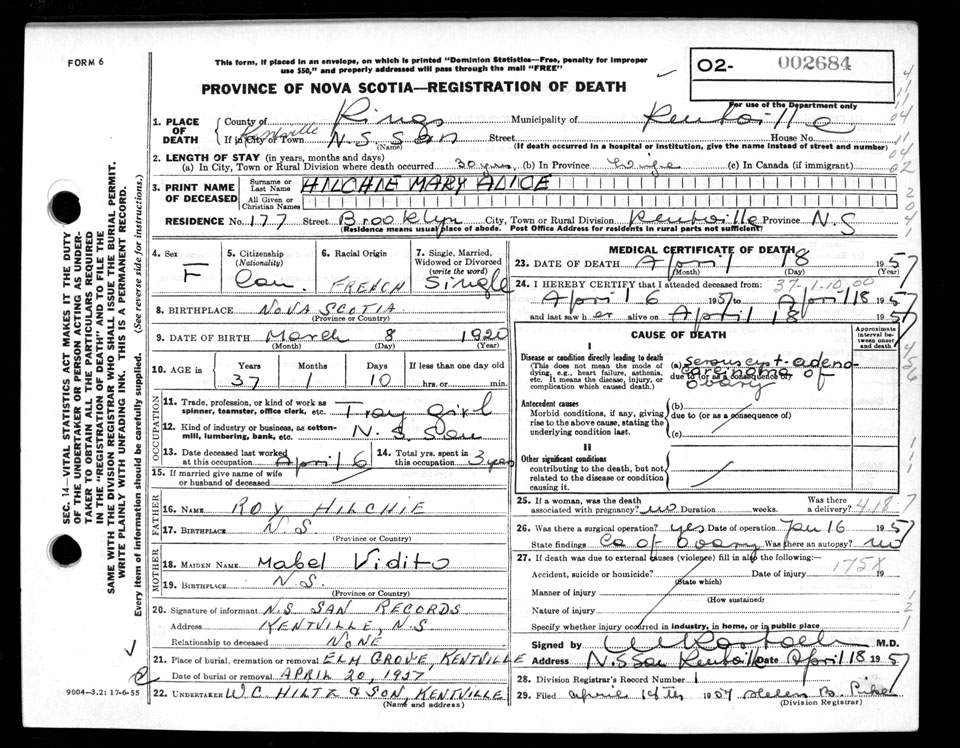 FORM 6
This form, if placed in an envelope, on which is printed "Dominion Statistics—Free, penalty for improper
use $50," and properly addressed will pass through the mail "FREE"
02- 002684
For use of the Department only
PROVINCE OF NOVA SCOTIA—REGISTRATION OF DEATH
1. PLACE OF DEATH County of Kings Municipality of Kentville
If in City or Town Kentville N.S. San Street House No.
(Name) (If death occurred in a hospital or institution, give the name instead of street and number)
2. LENGTH OF STAY (in years, months and days)
(a) In City, Town or Rural Division where death occurred 30 yrs. (b) In Province life (c) In Canada (if immigrant)
3. PRINT NAME OF DECEASED Surname or Last Name HILCHIE MARY ALICE
All Given or Christian Names
RESIDENCE No. 177 Street Brooklyn City, Town or Rural Division Kentville Province N.S
(Residence means usual place of abode. Post Office Address for residents in rural parts not sufficient)
4. Sex F
5. Citizenship (Nationality) Can.
6. Racial Origin FRENCH
7. Single, Married, Widowed or Divorced (write the word) Single
8. BIRTHPLACE NOVA SCOTIA
(Province or Country)
9. DATE OF BIRTH March 8 1920
(Month) (Day) (Year)
10. AGE in Years 37 Months 1 Days 10 If less than one day old
hrs. or min.
OCCUPATION
11. Trade, profession, or kind of work as
spinner, teamster, office clerk, etc. Tray Girl
12. Kind of industry or business, as cotton-
mill, lumbering, bank, etc. N.S. San
13. Date deceased last worked at this occupation April 6
14. Total yrs. spent in this occupation 3 years
15. If married give name of wife
or husband of deceased
FATHER
16. NAME ROY HILCHIE
17. BIRTHPLACE N.S.
(Province or Country)
MOTHER
18. MAIDEN NAME Mabel Vidito
19. BIRTHPLACE N.S.
(Province or Country)
20. Signature of informant N.S. SAN RECORDS
Address KENTVILLE, N.S
Relationship to deceased NONE
21. Place of burial, cremation or removal ELM GROVE, KENTVILLE
Date of burial or removal APRIL 20, 1957
22. UNDERTAKER W.C. HILTZ & SON, KENTVILLE
(Name and address)
MEDICAL CERTIFICATE OF DEATH
23. DATE OF DEATH April 18 1957
(Month) (Day) (Year)
37-1-10.00
24. I HEREBY CERTIFY that I attended deceased from:
April 6 1957 to April 18 1957
and last saw her alive on April 18 1957
CAUSE OF DEATH
Approximate interval between onset and death
I
Disease or condition directly leading to death
(This does not mean the mode of dying, e.g., heart failure, asthenia, etc. It means the disease, injury, or complication which caused death.)
(a) serous cyst-adeno-
carcinoma of
due to (or as a consequence of)
ovary
Antecedent causes
Morbid conditions, if any, giving rise to the above cause, stating the underlying condition last.
(b)
due to (or as a consequence of)
(c)
II
Other significant conditions
contributing to the death, but not related to the disease or condition causing it.
25. If a woman, was the death associated with pregnancy? no Duration weeks. Was there a delivery?
4.18.7
26. Was there a surgical operation? yes Date of operation Jan 16 1957
State findings Ca of Ovary Was there an autopsy? no
27. If death was due to external causes (violence) fill in also the following:—
175X
Accident, suicide or homicide? Date of injury 19
(State which)
Manner of injury
(How sustained)
Nature of injury
Specify whether injury occurred in industry, in home, or in public place
Signed by M.D.
Address N.S San Kentville Date April 18 1957
28. Division Registrar's Record Number 1
29. Filed April 19th 1957 Helen B. Pike
(Division Registrar)
SEC. 14—VITAL STATISTICS ACT MAKES IT THE DUTY
OF THE UNDERTAKER OR PERSON ACTING AS UNDER-
TAKER TO OBTAIN ALL THE PARTICULARS REQUIRED
IN THE "REGISTRATION OF DEATH" AND TO FILE THE
SAME WITH THE DIVISION REGISTRAR WHO SHALL ISSUE THE BURIAL PERMIT.
WRITE PLAINLY WITH UNFADING INK. THIS IS A PERMANENT RECORD.
Every item of information should be carefully supplied. (See reverse side for instructions.)
9004-3.2: 17-6-55